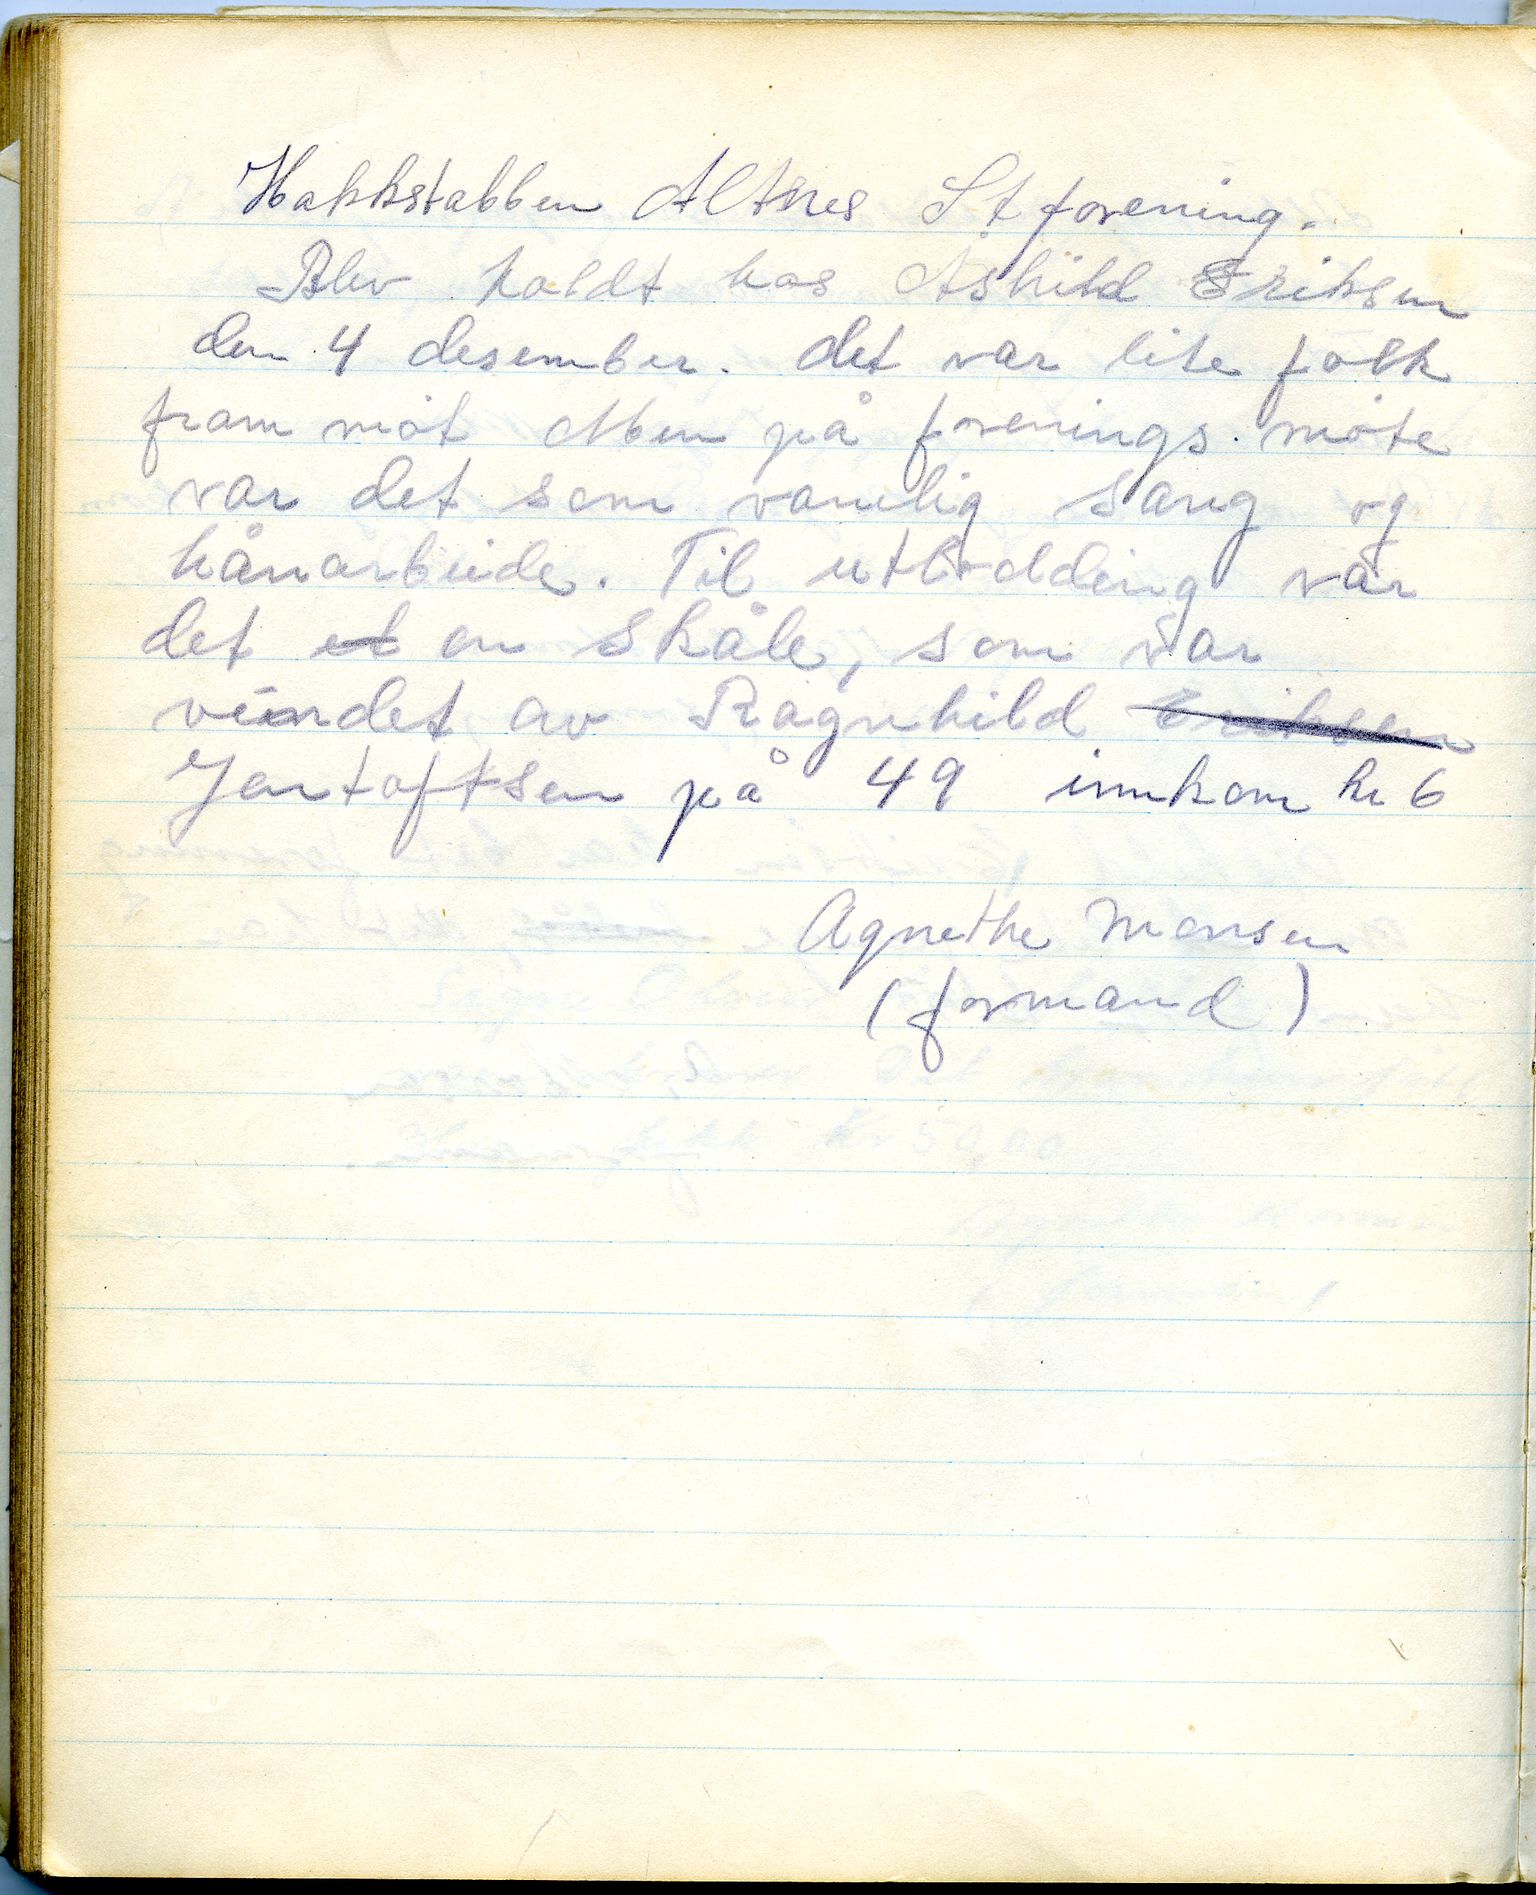 Hakkstabben Altnes St forening.
Blev holdt hos Åshild Eriksen
den 4 desember. det var lite folk
fram møt Men på forenings møte
var det som vanelig sang og
hånarbeide. Til utlodding var
det et en skåle, som var
vindet av Ragnhild Eriksen
Jentoftsen på 49 innkom kr 6
Agnethe Monsen
(formand)